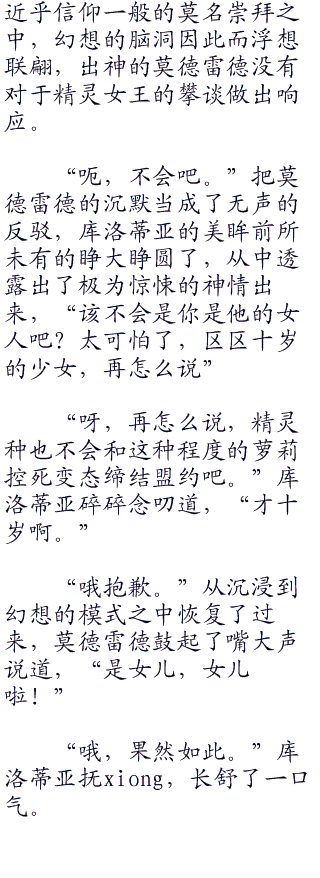 近乎信仰一般的莫名崇拜之
中，幻想的脑洞因此而浮想
联翩，出神的莫德雷德没有
对于精灵女王的攀谈做出响
应。
“呃，不会吧。”把莫
德雷德的沉默当成了无声的
反驳，库洛蒂亚的美眸前所
未有的睁大睁圆了，从中透
露出了极为惊悚的神情出
来，“该不会是你是他的女
人吧？太可怕了，区区十岁
的少女，再怎么说”
“呀，再怎么说，精灵
种也不会和这种程度的萝莉
控死变态缔结盟约吧。”库
洛蒂亚碎碎念叨道，“才十
岁啊。”
“哦抱歉。”从沉浸到
幻想的模式之中恢复了过
来，莫德雷德鼓起了嘴大声
说道，“是女儿，女儿
啦！”
“哦，果然如此。”库
洛蒂亚抚xiong，长舒了一口
气。